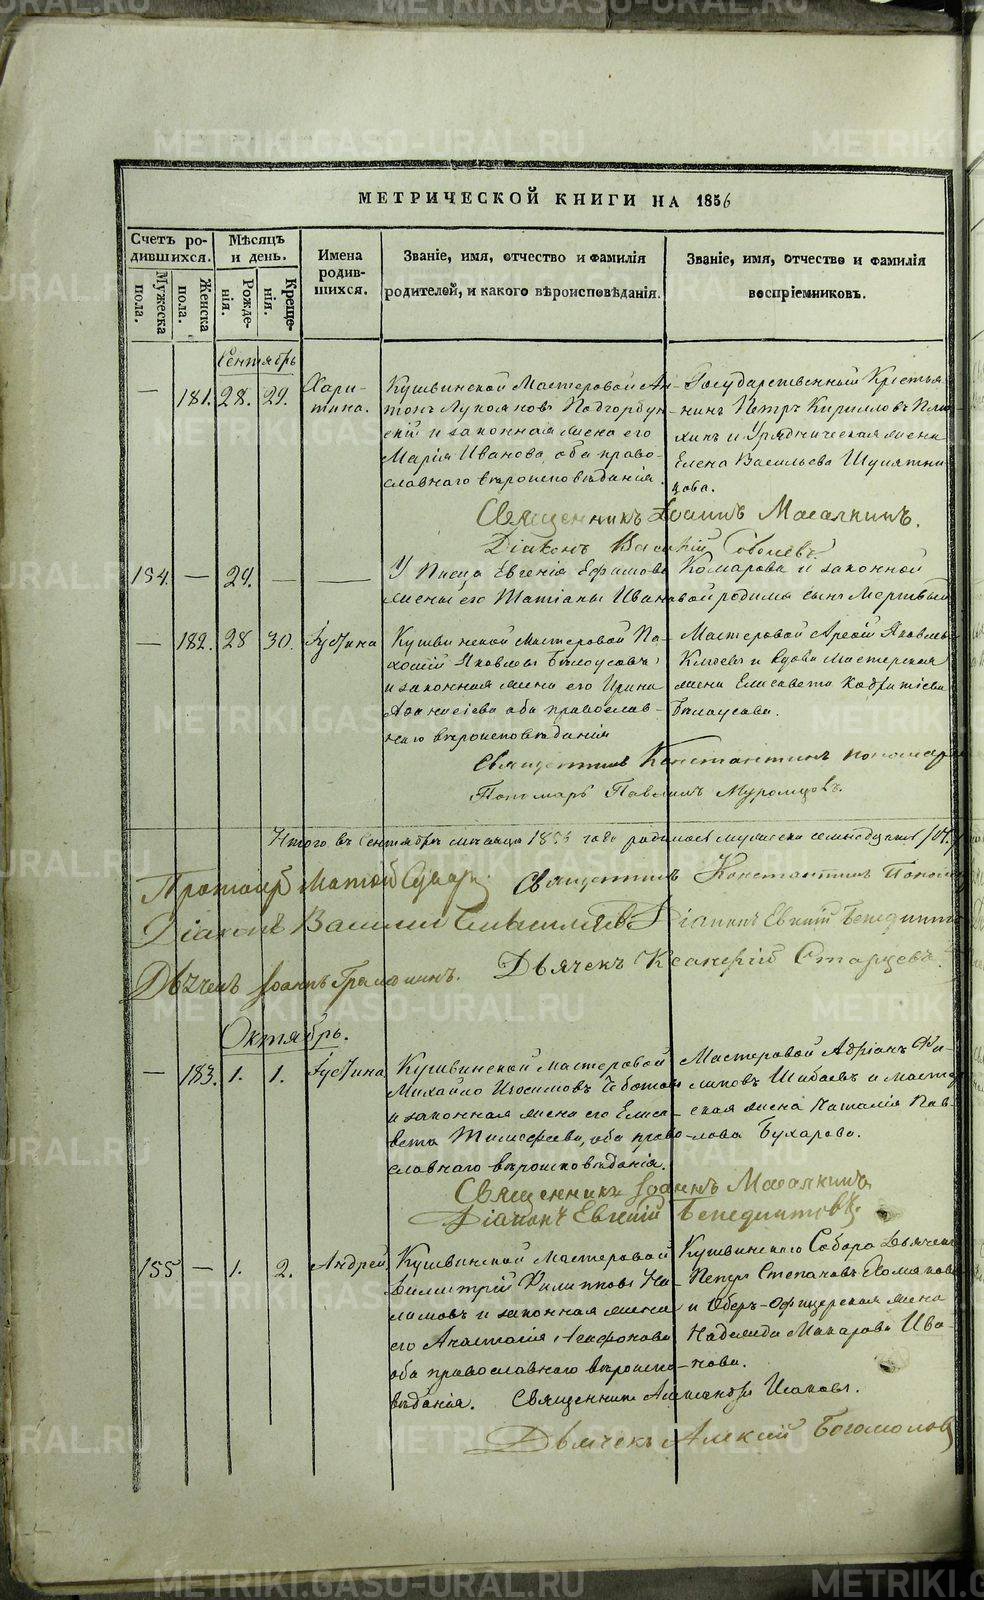 МЕТРИЧЕСКОЙ КНИГИ НА 1856
Счетъ ро-
дившихся.
Мужеска
пола.
Женска
пола.
Мѣсяцъ
и день.
Рожде-
нія.
Креще-
нія.
Имена
родив-
шихся.
Званіе, имя, отчество и фамилія
родителей, и какого вѣроисповѣданія.
Званіе, имя, отчество и фамилія
воспріемниковъ.
Сентябрь
— 181. 28. 29.
Хари-
тина.
Кушвинской Мастеровой Ан-
тонъ Лукояновъ Подгорбун-
скій и законная жена его
Марія Иванова, оба право-
славнаго вѣроисповѣданія.
Государственный Крестья-
нинъ Петръ Кирилловъ
и Урядническая жена
Елена Васильева
Священникъ Іоаннъ Масалкинъ.
Діаконъ Василій Соболевъ
154. — 29. — —
У Писца Евгенія Ефимова Комарова и законной
жены его Татіаны Ивановой родился сынъ Мертвый
— 182. 28 30. Іустина
Кушвинской мастеровой Па-
хомій Яковлевъ Бѣлоусовъ
и законная жена его Ирина
Афанасіева оба православ-
наго вѣроисповѣданія
Мастеровой Арсеній Яковлевъ
и вдова мастерская
жена Елисавета
Бѣлоусова.
Священникъ Константинъ Пономаре
Пономарь Павелъ Муромцовъ.
Итого въ Сентябрѣ мѣсяцѣ 1856 года родилось мужеска семнадцать
Протоіерей
Священникъ Константинъ Поном
Діаконъ Василій
Діаконъ Евгеній Бенедиктов
Дьячекъ Іоаннъ
Дьячекъ Ксенофонтій Старцевъ.
Октябрь.
— 183. 1. 1. Іустина
Кушвинской мастеровой
Михайло Изосимовъ
и законная жена его Елиса-
вета Тимофеева, оба право-
славнаго вѣроисповѣданія.
Мастеровой Адріанъ Фи-
липовъ Шибаевъ и мастер
ская жена Наталія Пав-
лова Бухарова.
Священникъ Іоаннъ Масалкинъ
Діаконъ Евгеній Бенедиктовъ.
155 — 1. 2. Андрей
Кушвинской Мастеровой
Димитрій Филипповъ На-
лимовъ и законная жена
его Анастасія Агафонова
оба православнаго вѣроиспо-
вѣданія.
Кушвинскаго Собора Дьячекъ
Петръ Степановъ Хомяковъ
и Оберъ-офицерская жена
Надежда Макарова Ива-
нова.
Священникъ Александръ Исаковъ.
Дьячекъ Алексій Богомолов
METRIKI.GASO-URAL.RU